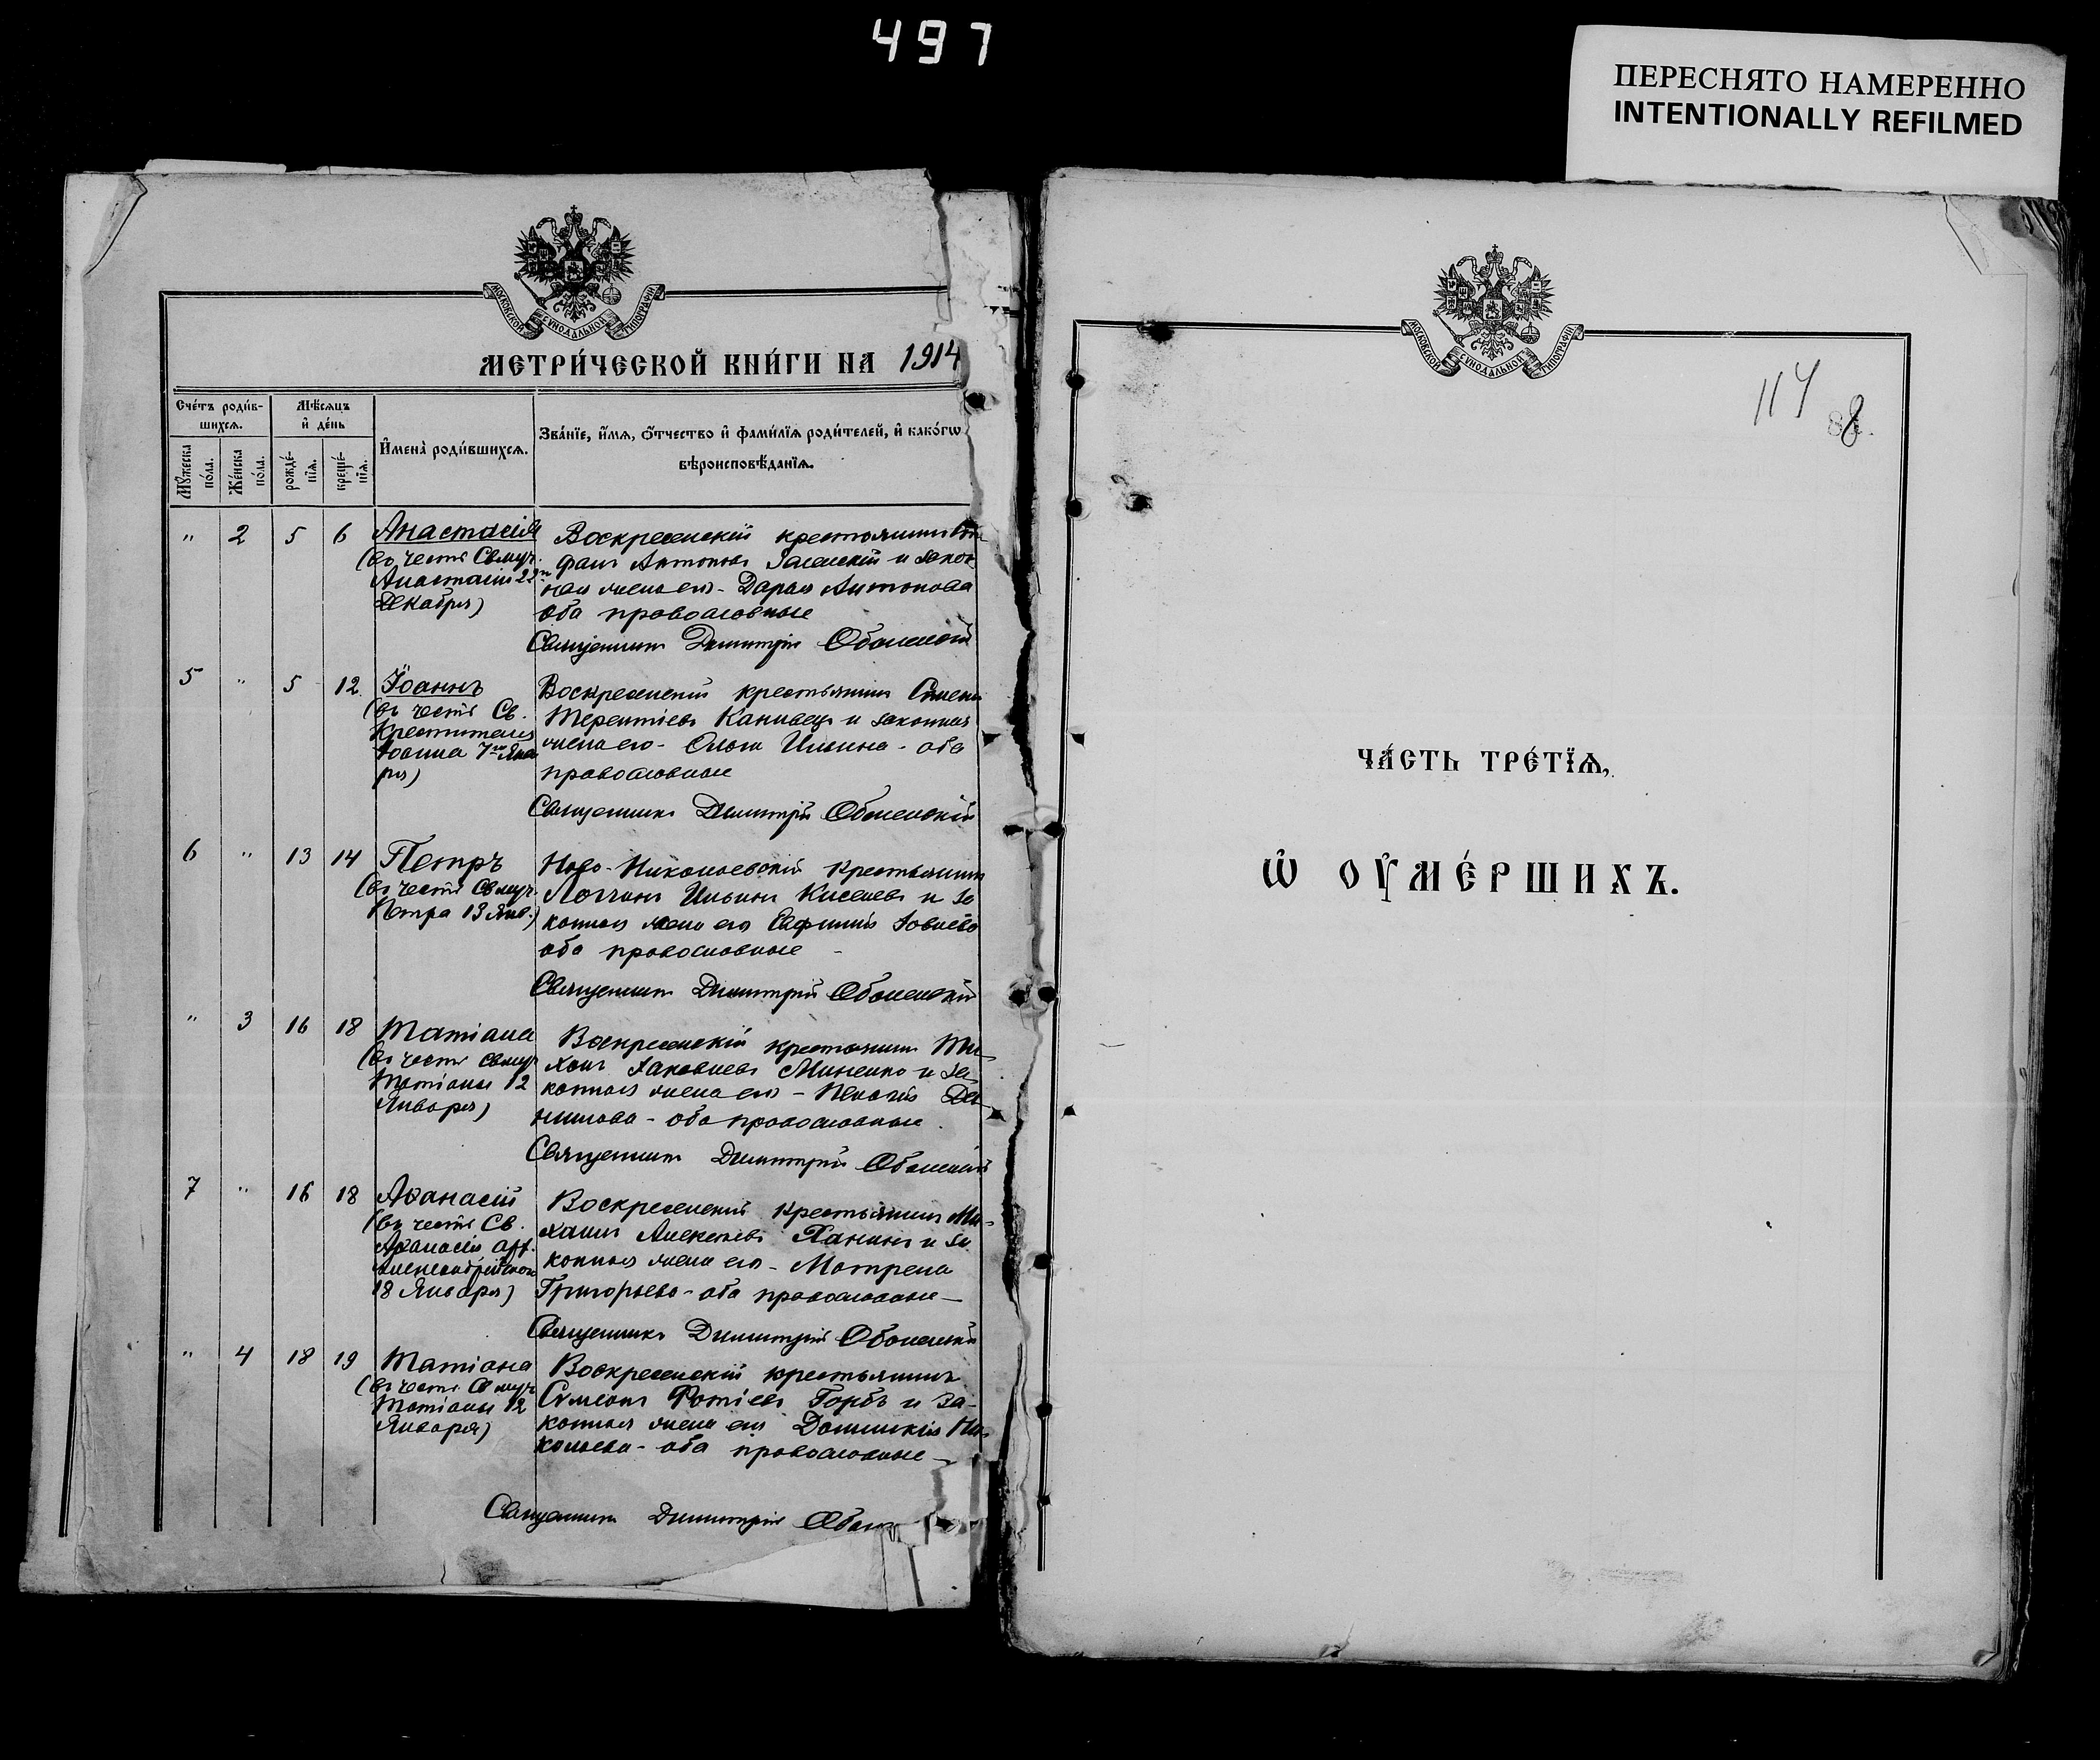 497
ПЕРЕСНЯТО НАМЕРЕННО
INTENTIONALLY REFILMED
МОСКОВСКОЙ СѴНОДАЛЬНОЙ ТИПОГРАФІИ
МЕТРИ́ЧЕСКОЙ КНИ́ГИ НА 1914
Сче́тъ роди́в-
шихсѧ.
Мѣ́сѧцъ
и҆ де́нь
Мꙋ́жеска
по́ла.
Же́нска
по́ла.
рожде́-
нїѧ.
креще́-
нїѧ.
И҆мена̀ роди́вшихсѧ.
Зва́нїе, и҆́мѧ, ѻ҆́тчество и҆ фами́лїѧ роди́телей, и҆ како́гѡ
вѣроисповѣ́данїѧ.
" 2 5 6 Анастасія
(въ честь Св. муч.
Анастасіи 22го
Декабря)
Воскресенскій крестьянинъ
Антоновъ и закон
ная жена его - Дарья Антонова
оба православные
Священникъ Димитрій Оболенскій
5 " 5 12 Іоаннъ
(въ честь Св.
Крестителя
Іоанна 7го Янва
ря)
Воскресенскій крестьянинъ
Терентіевъ Канивецъ и законная
жена его - Ольга Ильина - оба
православные
Священникъ Димитрій Оболенскій
6 " 13 14 Петръ
(въ честь Св. муч.
Петра 13 Янв.)
Ново-Николаевскій крестьянинъ
Логгинъ Ильинъ Киселевъ и за
конная жена его Евфимія Іовлева
оба православные -
Священникъ Димитрій Оболенскій
" 3 16 18 Татіана
(въ честь Св. муч
Татіаны 12
Января)
Воскресенскій крестьянинъ Ти
хонъ Іаковлевъ Миненко и за
конная жена его - Пелагія Да
нилова - оба православные
Священникъ Димитрій Оболенскій
7 " 16 18 Аѳанасій
(въ честь Св.
Аѳанасія арх.
Александрійскаго
18 Января)
Воскресенскій крестьянинъ Ми-
хаилъ Алексѣевъ Ханинъ и за
конная жена его - Матрена
Григорьева - оба православные -
Священникъ Димитрій Оболенскій
" 4 18 19 Татіана
(въ честь Св муч
Татіаны 12
Января)
Воскресенскій крестьянинъ
Сѵмеонъ Фотіевъ Горбъ и за-
конная жена его Домникія Ни-
колаева - оба православные -
Священникъ Димитрій
МОСКОВСКОЙ СѴНОДАЛЬНОЙ ТИПОГРАФІИ
114
8
ЧА́СТЬ ТРЕ́ТЇѦ,
Ѡ҆ ОУ҆МЕ́РШИХЪ.